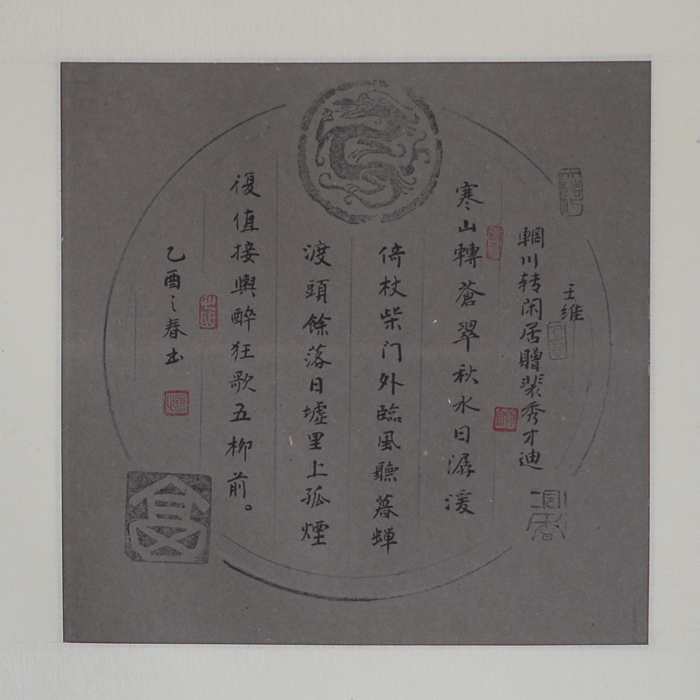 王维
辋川转闲居贈裴秀才迪
寒山轉蒼翠秋水日潺湲
倚杖柴门外臨風聽暮蝉
渡頭餘落日墟里上孤煙
復值接輿醉狂歌五柳前。
乙酉之春书